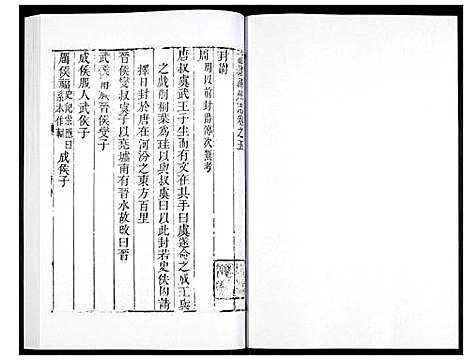 卷之五
封爵
周 周以前封爵停次無考
唐叔虞武王子生而有文在其手曰虞遂命之成王與
之戲削桐葉為珪以與叔虞曰以此封若史佚因請
擇日封於唐在河汾之東方百里
晉侯燮叔虞子以堯墟南有晉水故改曰晉
武侯 族晉侯燮子
成侯服人武侯子
厲侯福 史記世家 系本作輻 曰成侯子